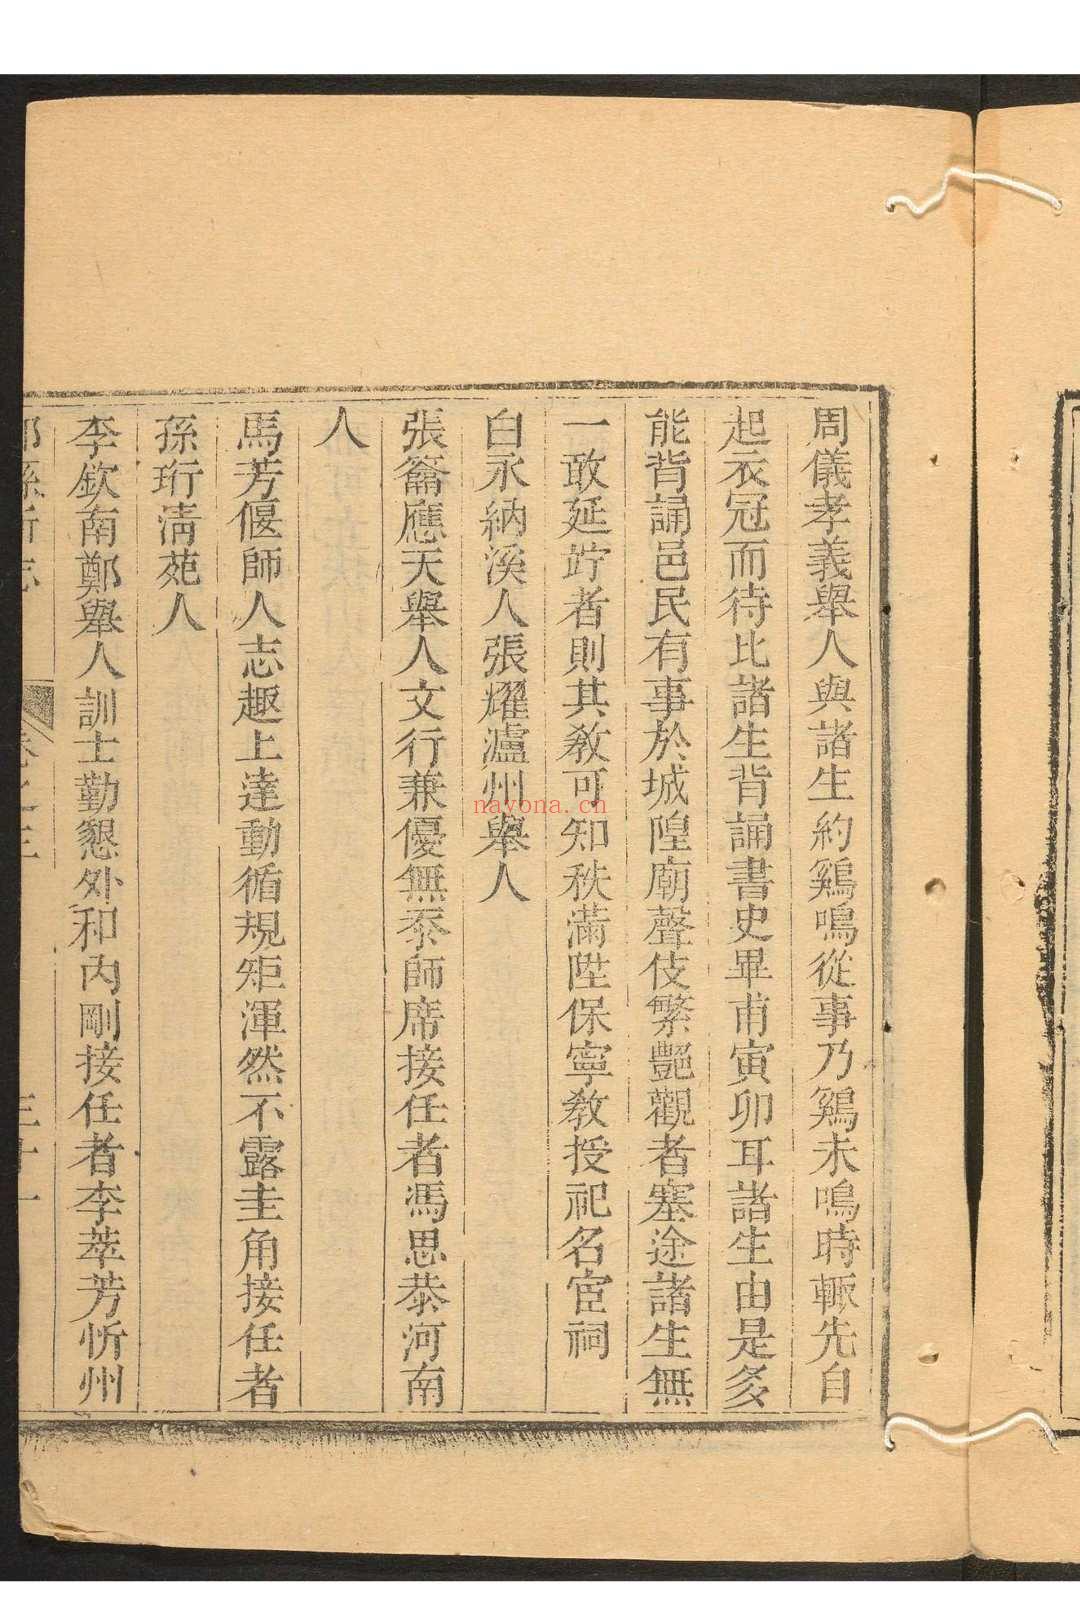 周儀孝義舉人與諸生約鷄鳴從事乃鷄未鳴時輒先自
起衣冠而待比諸生背誦書史畢甫寅卯耳諸生由是多
能背誦邑民有事於城隍廟聲伎繁艷觀者塞途諸生無
一敢延竚者則其教可知秩滿陞保寧教授祀名宦祠
白永納溪人張耀瀘州舉人
張籥應天舉人文行兼優無忝師席接任者馮思恭河南
人
馬芳偃師人志趣上達動循規矩渾然不露圭角接任者
孫珩清苑人
李欽南鄭舉人訓士勤懇外和內剛接任者李萃芳忻州
卷之三
三十一
nayona.cn